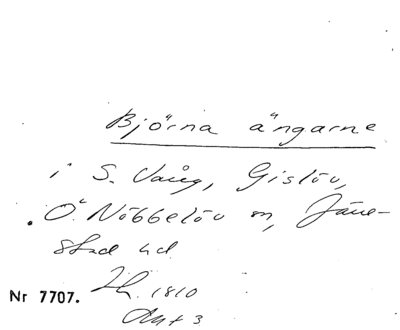 Björna ängarne
i S. Vång, Gislöv,
Ö. Nöbbelöv m, Järre-
stad hd
Nr 7707. Th. 1810
Akt 3